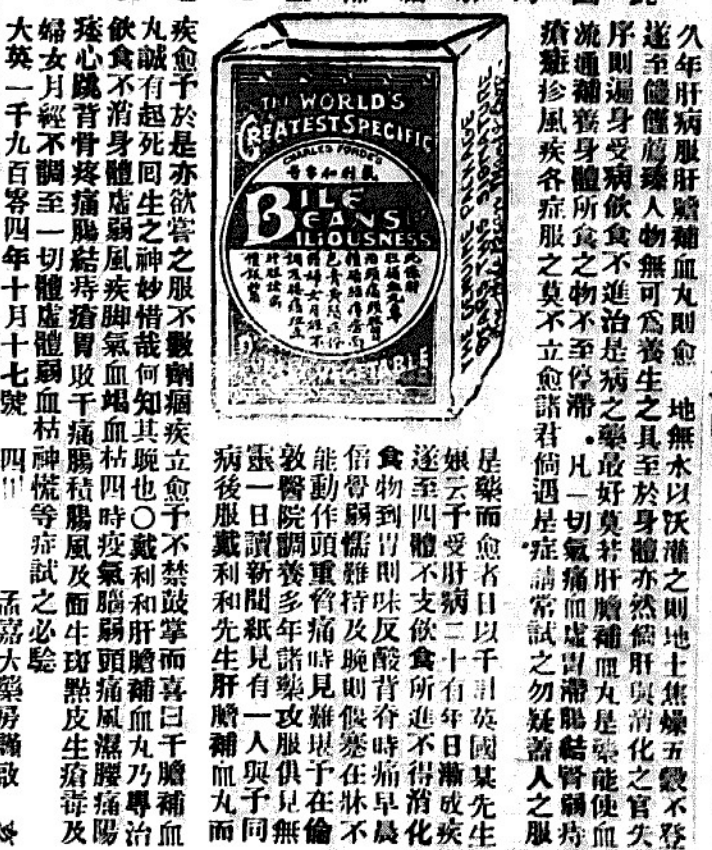 久年肝病服肝膽補血丸則愈 地無水以沃灌之則地土焦燥五穀不登
遂至饑饉薦臻人物無可爲養生之具至於身體亦然儻肝與消化之官失
序則遍身受病飲食不進治是病之藥最好莫若肝膽補血丸是藥能使血
流通補養身體所食之物不至停滯。凡一切氣痛血虛胃滯腸結腎弱痔
瘡癍疹風疾各症服之莫不立愈諸君倘遇是症請嘗試之勿疑蓋人之服
THE WORLD'S
GREATEST SPECIFIC
CHARLES FORDE'S
BILE
BEANS
BILIOUSNESS
VEGETABLE
是藥而愈者日以千計英國某先生
娘云予受肝病二十有年日漸成疾
遂至四體不支飲食所進不得消化
食物到胃則味反酸背脊時痛早晨
倍覺弱懦難持及晚則偃蹇在牀不
能動作頭重脅痛時見難堪予在倫
敦醫院調養多年諸藥攻服俱見無
靈一日讀新聞紙見有一人與予同
病後服戴利和先生肝膽補血丸而
疾愈予於是亦欲嘗之服不數劑痼疾立愈予不禁鼓掌而喜曰干膽補血
丸誠有起死回生之神妙惜哉何知其晚也〇戴利和肝膽補血丸乃專治
飲食不消身體虛弱風疾脚氣血竭血枯四時疫氣腦弱頭痛風濕腰痛陽
痿心跳背骨疼痛腸結痔瘡胃敗干痛腸積腸風及面生斑點皮生瘡毒及
婦女月經不調至一切體虛體弱血枯神慌等症試之必驗
大英一千九百零四年十月十七號 孟嘉大藥房謹啟